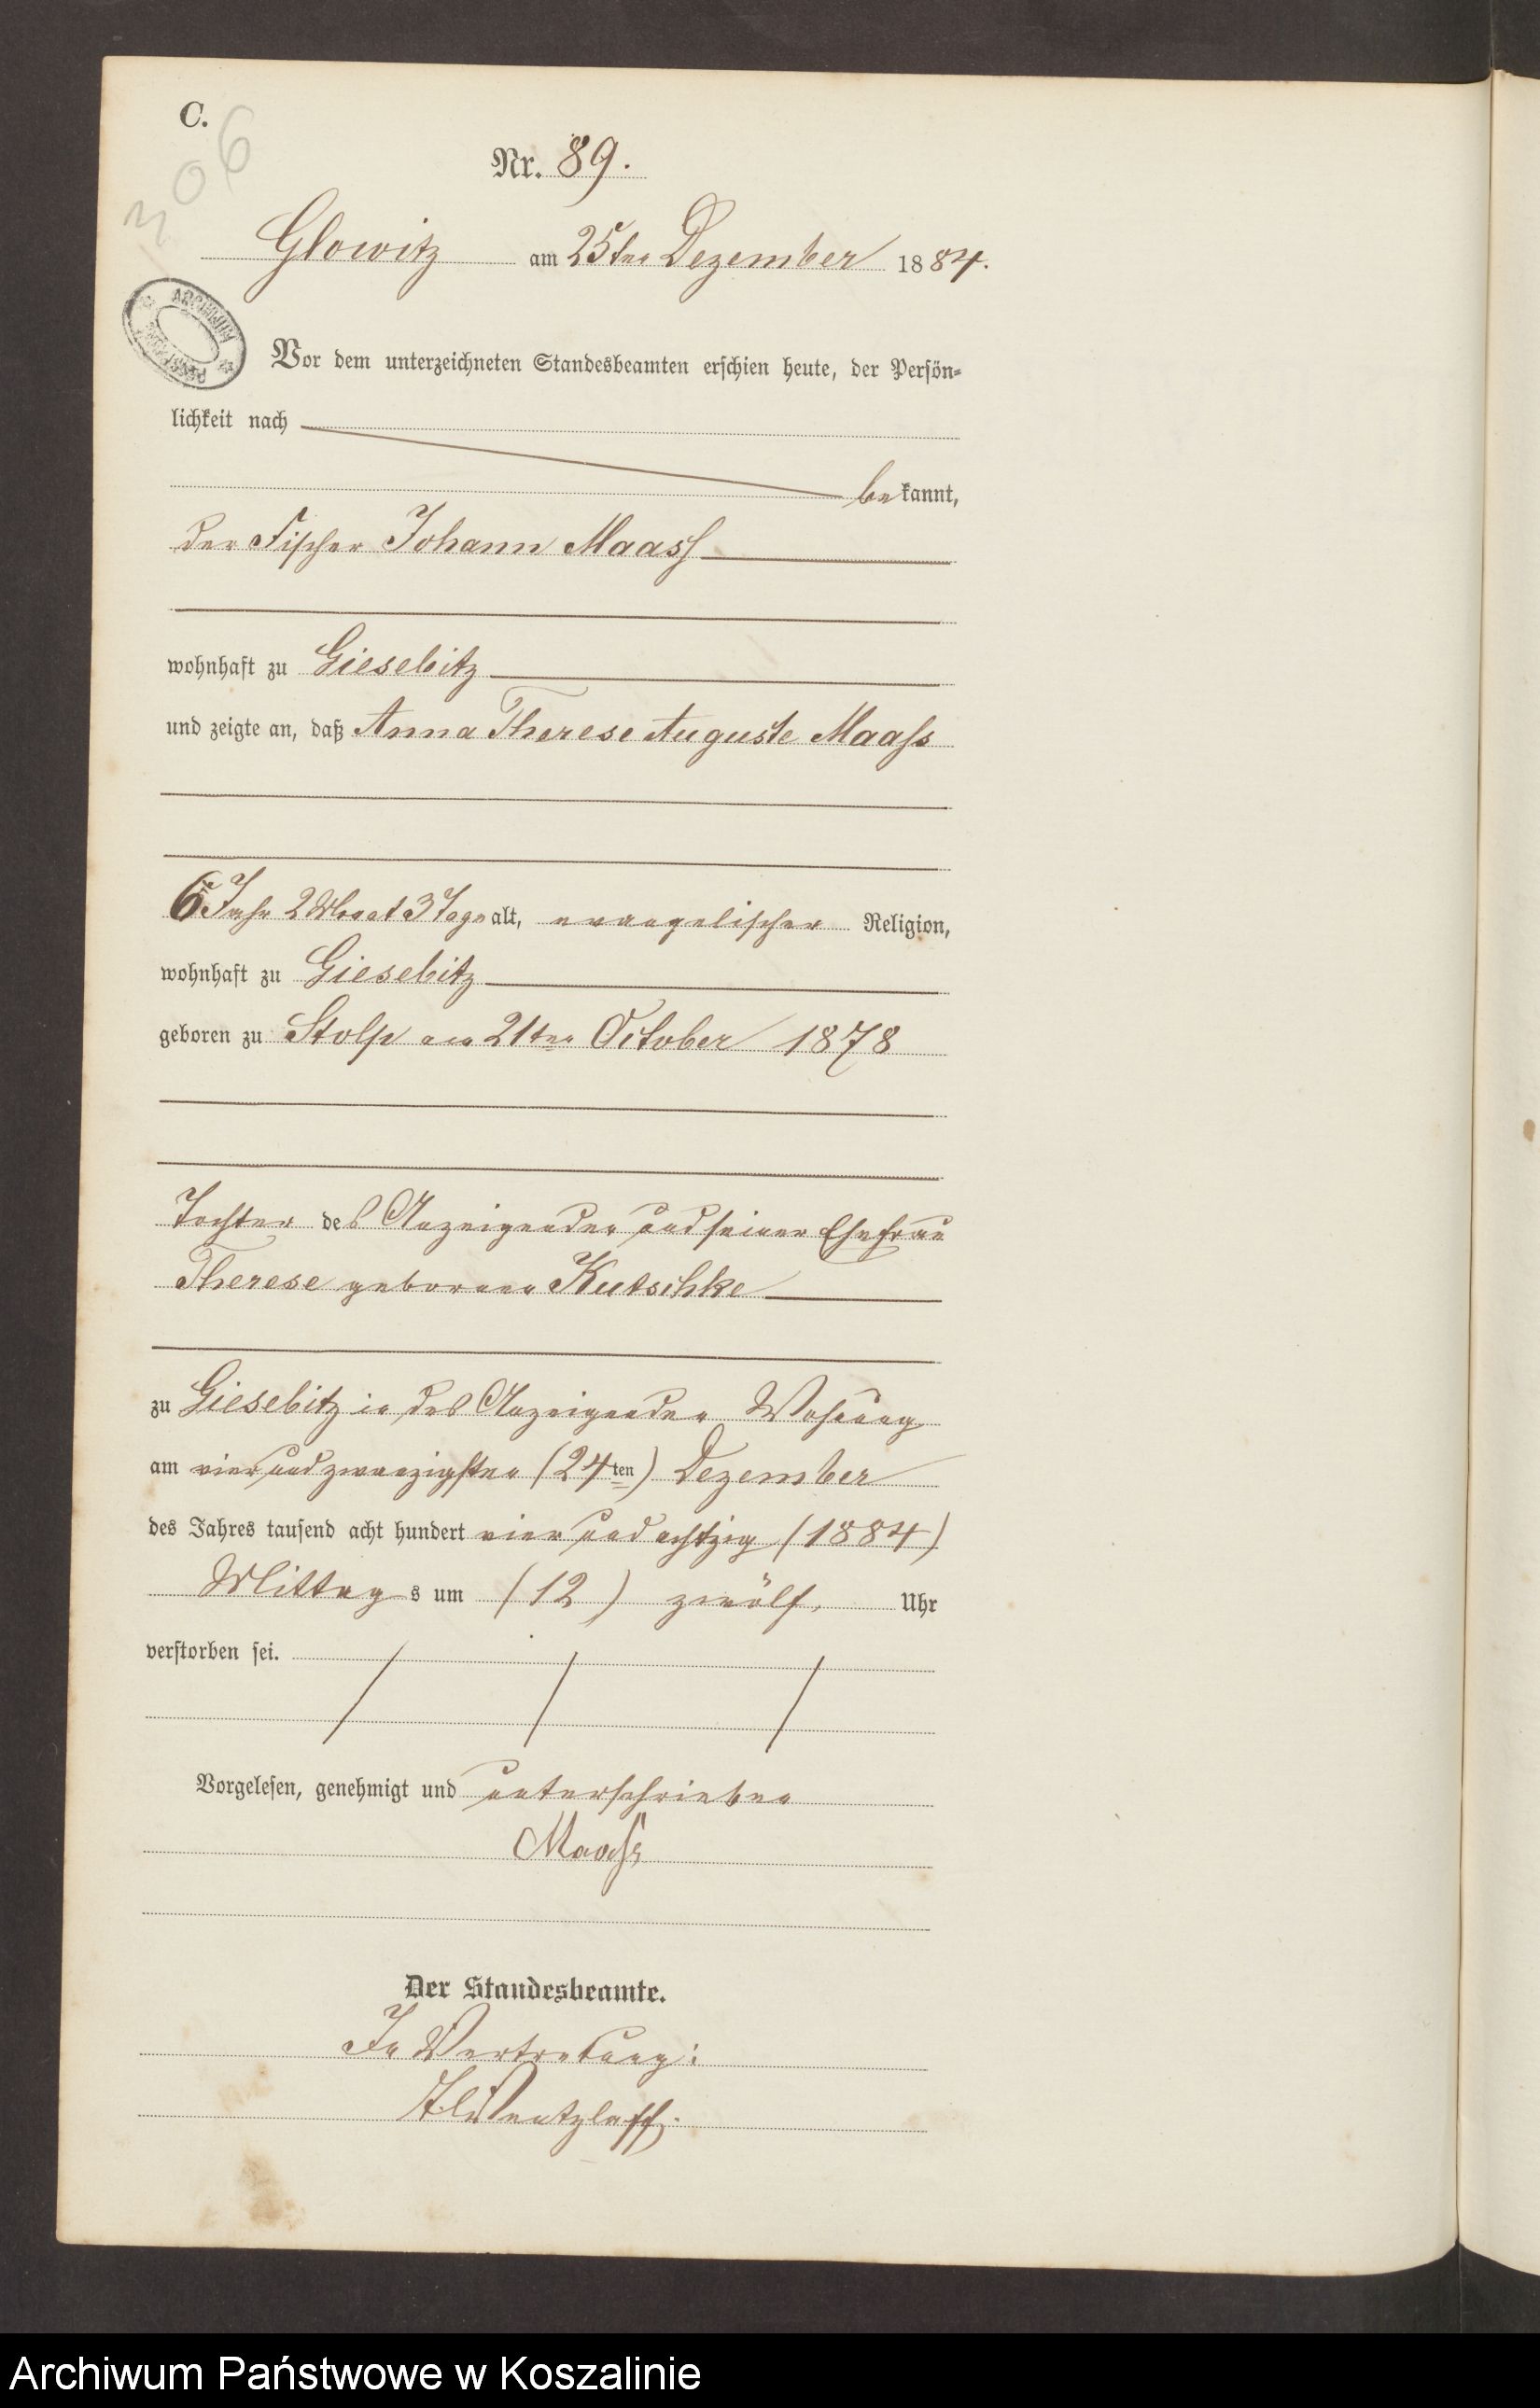 C.
306
Nr. 89.
Glowitz am 25ten Dezember 1884.
ARCHIWUM
Vor dem unterzeichneten Standesbeamten erschien heute, der Persön-
lichkeit nach
bekannt,
der Fischer Johann Maass
wohnhaft zu Giesebitz
und zeigte an, daß Anna Therese Auguste Maass
6 Jahr 2 Monat 3 Tage alt, evangelischer Religion,
wohnhaft zu Giesebitz
geboren zu Stolp am 21ten October 1878
Tochter des Anzeigenden und seiner Ehefrau
Therese geborenen Kutschke
zu Giesebitz in des Anzeigenden Wohnung
am vier und zwanzigsten (24ten) Dezember
des Jahres tausend acht hundert vier und achtzig (1884)
Mittags um (12) zwölf Uhr
verstorben sei.
Vorgelesen, genehmigt und unterschrieben
Maass
Der Standesbeamte.
In Vertretung:
Wentzlaff.
Archiwum Państwowe w Koszalinie